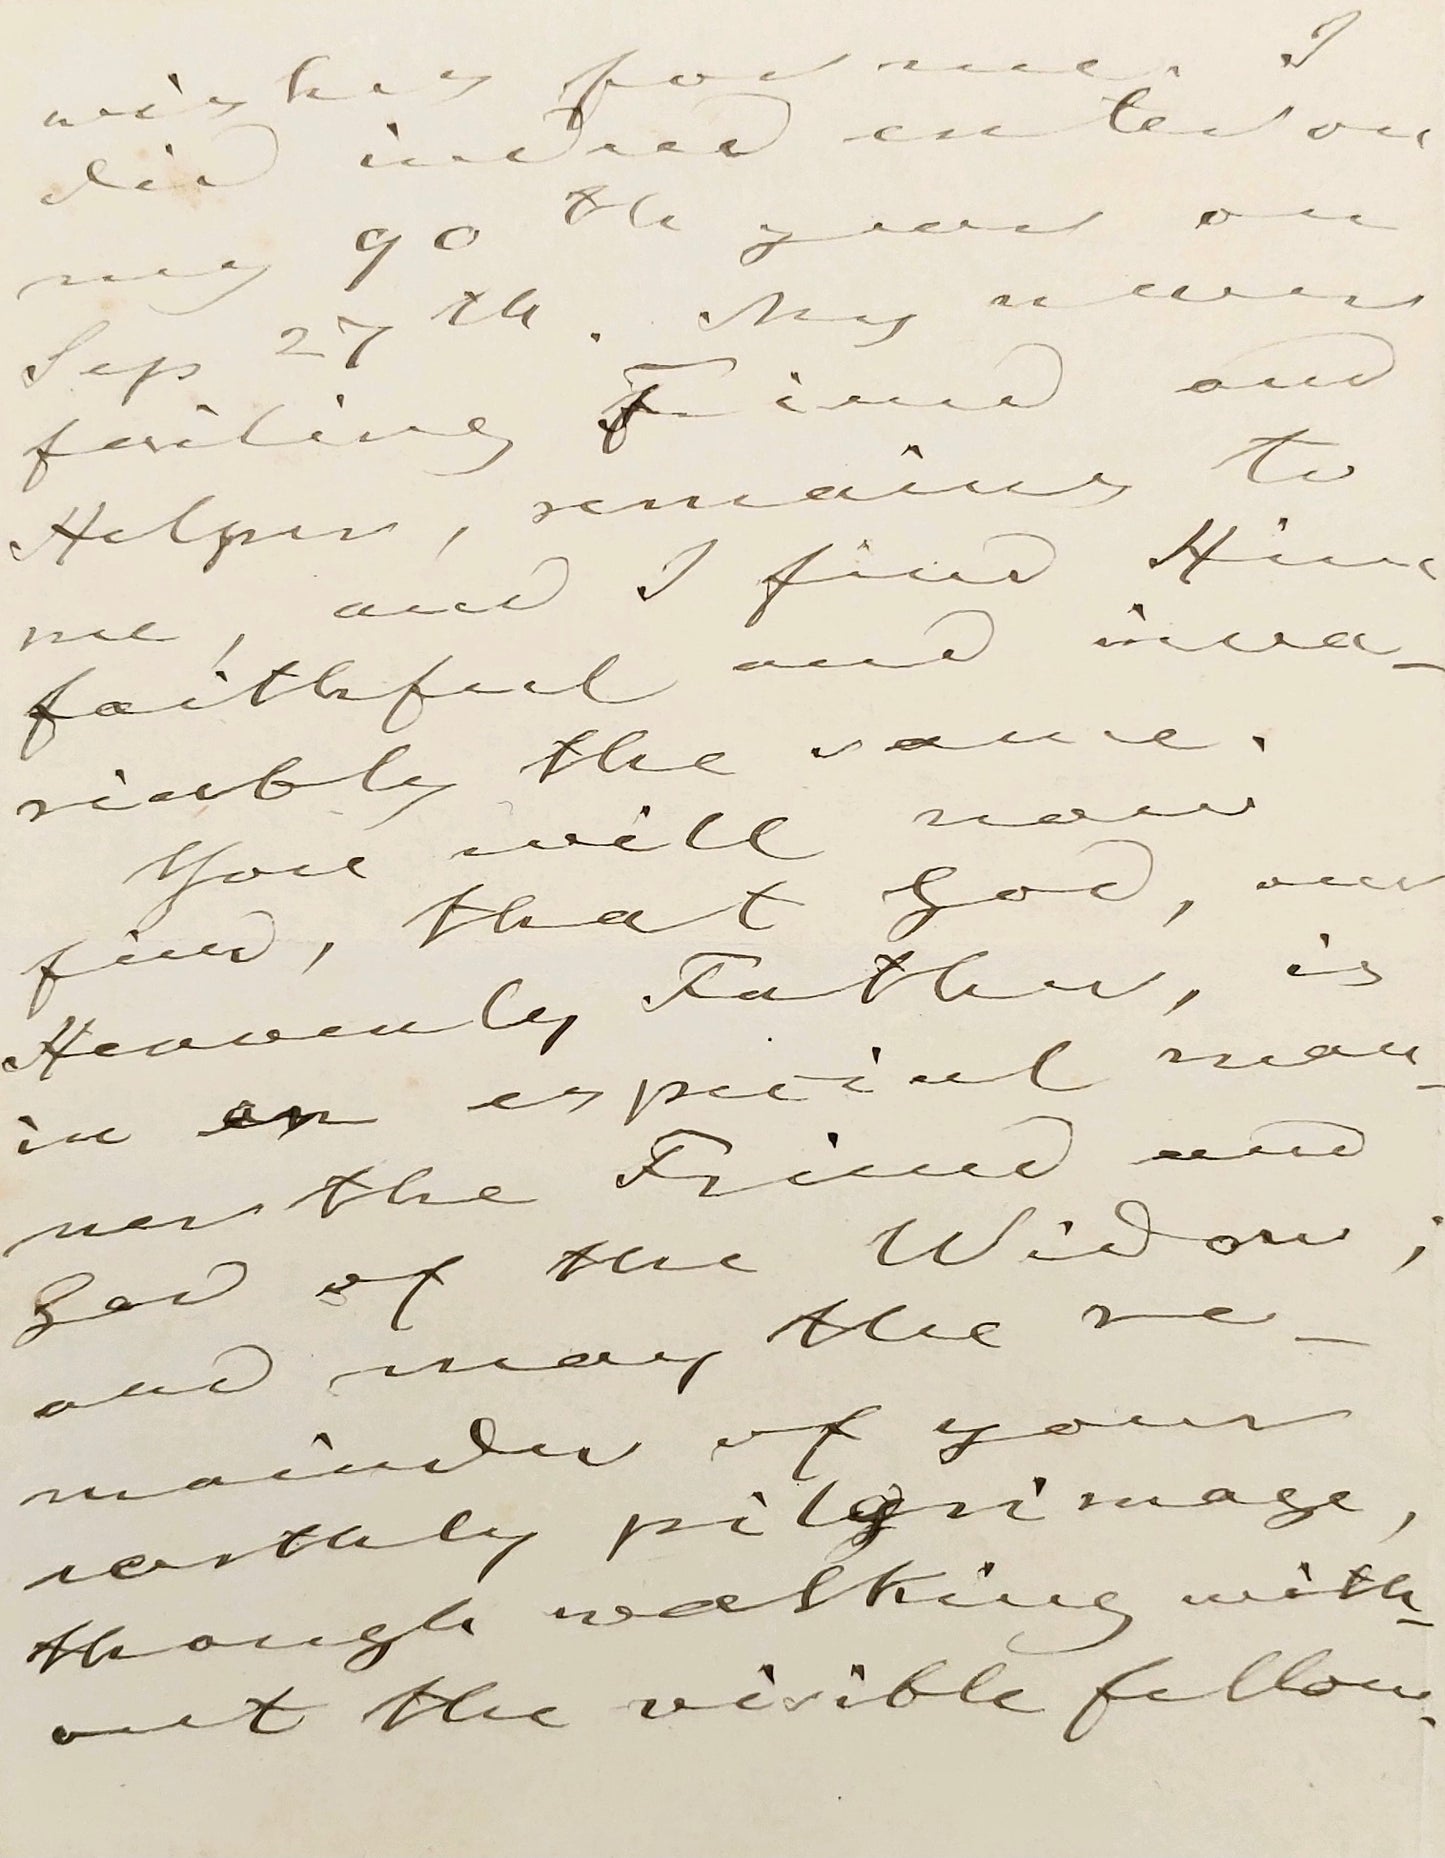 wishes for me. I
did indeed enter on
my 90th year on
Sep 27th. My never
failing Friend and
Helper, remains to
me, and I find Him
faithful and inva-
riably the same.
You will now
find, that God, our
Heavenly Father, is
in an especial man-
ner the Friend and
God of the Widow;
and may the re-
mainder of your
earthly pilgrimage,
though walking with-
out the visible fellow-